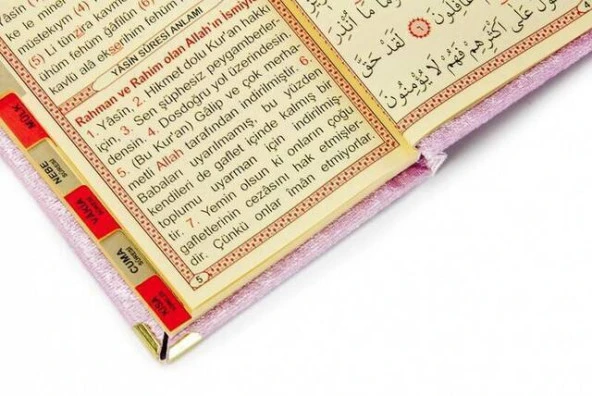 ke le minel
müstekıym
(5) Li tünzira kavmen
ühüm fehüm ğâfilûn (6)
kavlü alâ ekserihim fehüm
YÂSİN SÛRESİ ANLAMI
Rahman ve Rahim olan Allah'ın İsmiyle
1. Yâsin, 2. Hikmet dolu Kur'an hakkı
için, 3. Sen şüphesiz peygamberler-
densin. 4. Dosdoğru yol üzerindesin.
5. (Bu Kur'an) Galip ve çok merha-
metli Allah tarafından indirilmiştir. 6.
Babaları uyarılmamış, bu yüzden
kendileri de gaflet içinde kalmış bir
toplumu uyarman için indirilmiş-
tir. 7. Yemin olsun ki onların çoğu
gafletlerinin cezasını hak etmişler-
dir. Çünkü onlar îmân etmiyorlar.
5
MÜLK
NEBE
SÛRESİ
VAKIA
SÛRESİ
CUMA
SÛRESİ
KISA
مَا أُنْذِرَ
غَافِلُونَ ﴿٦﴾ لَقَدْ حَقَّ
الْقَوْلُ عَلَى أَكْثَرِهِمْ فَهُمْ لَا يُؤْمِنُونَ
4